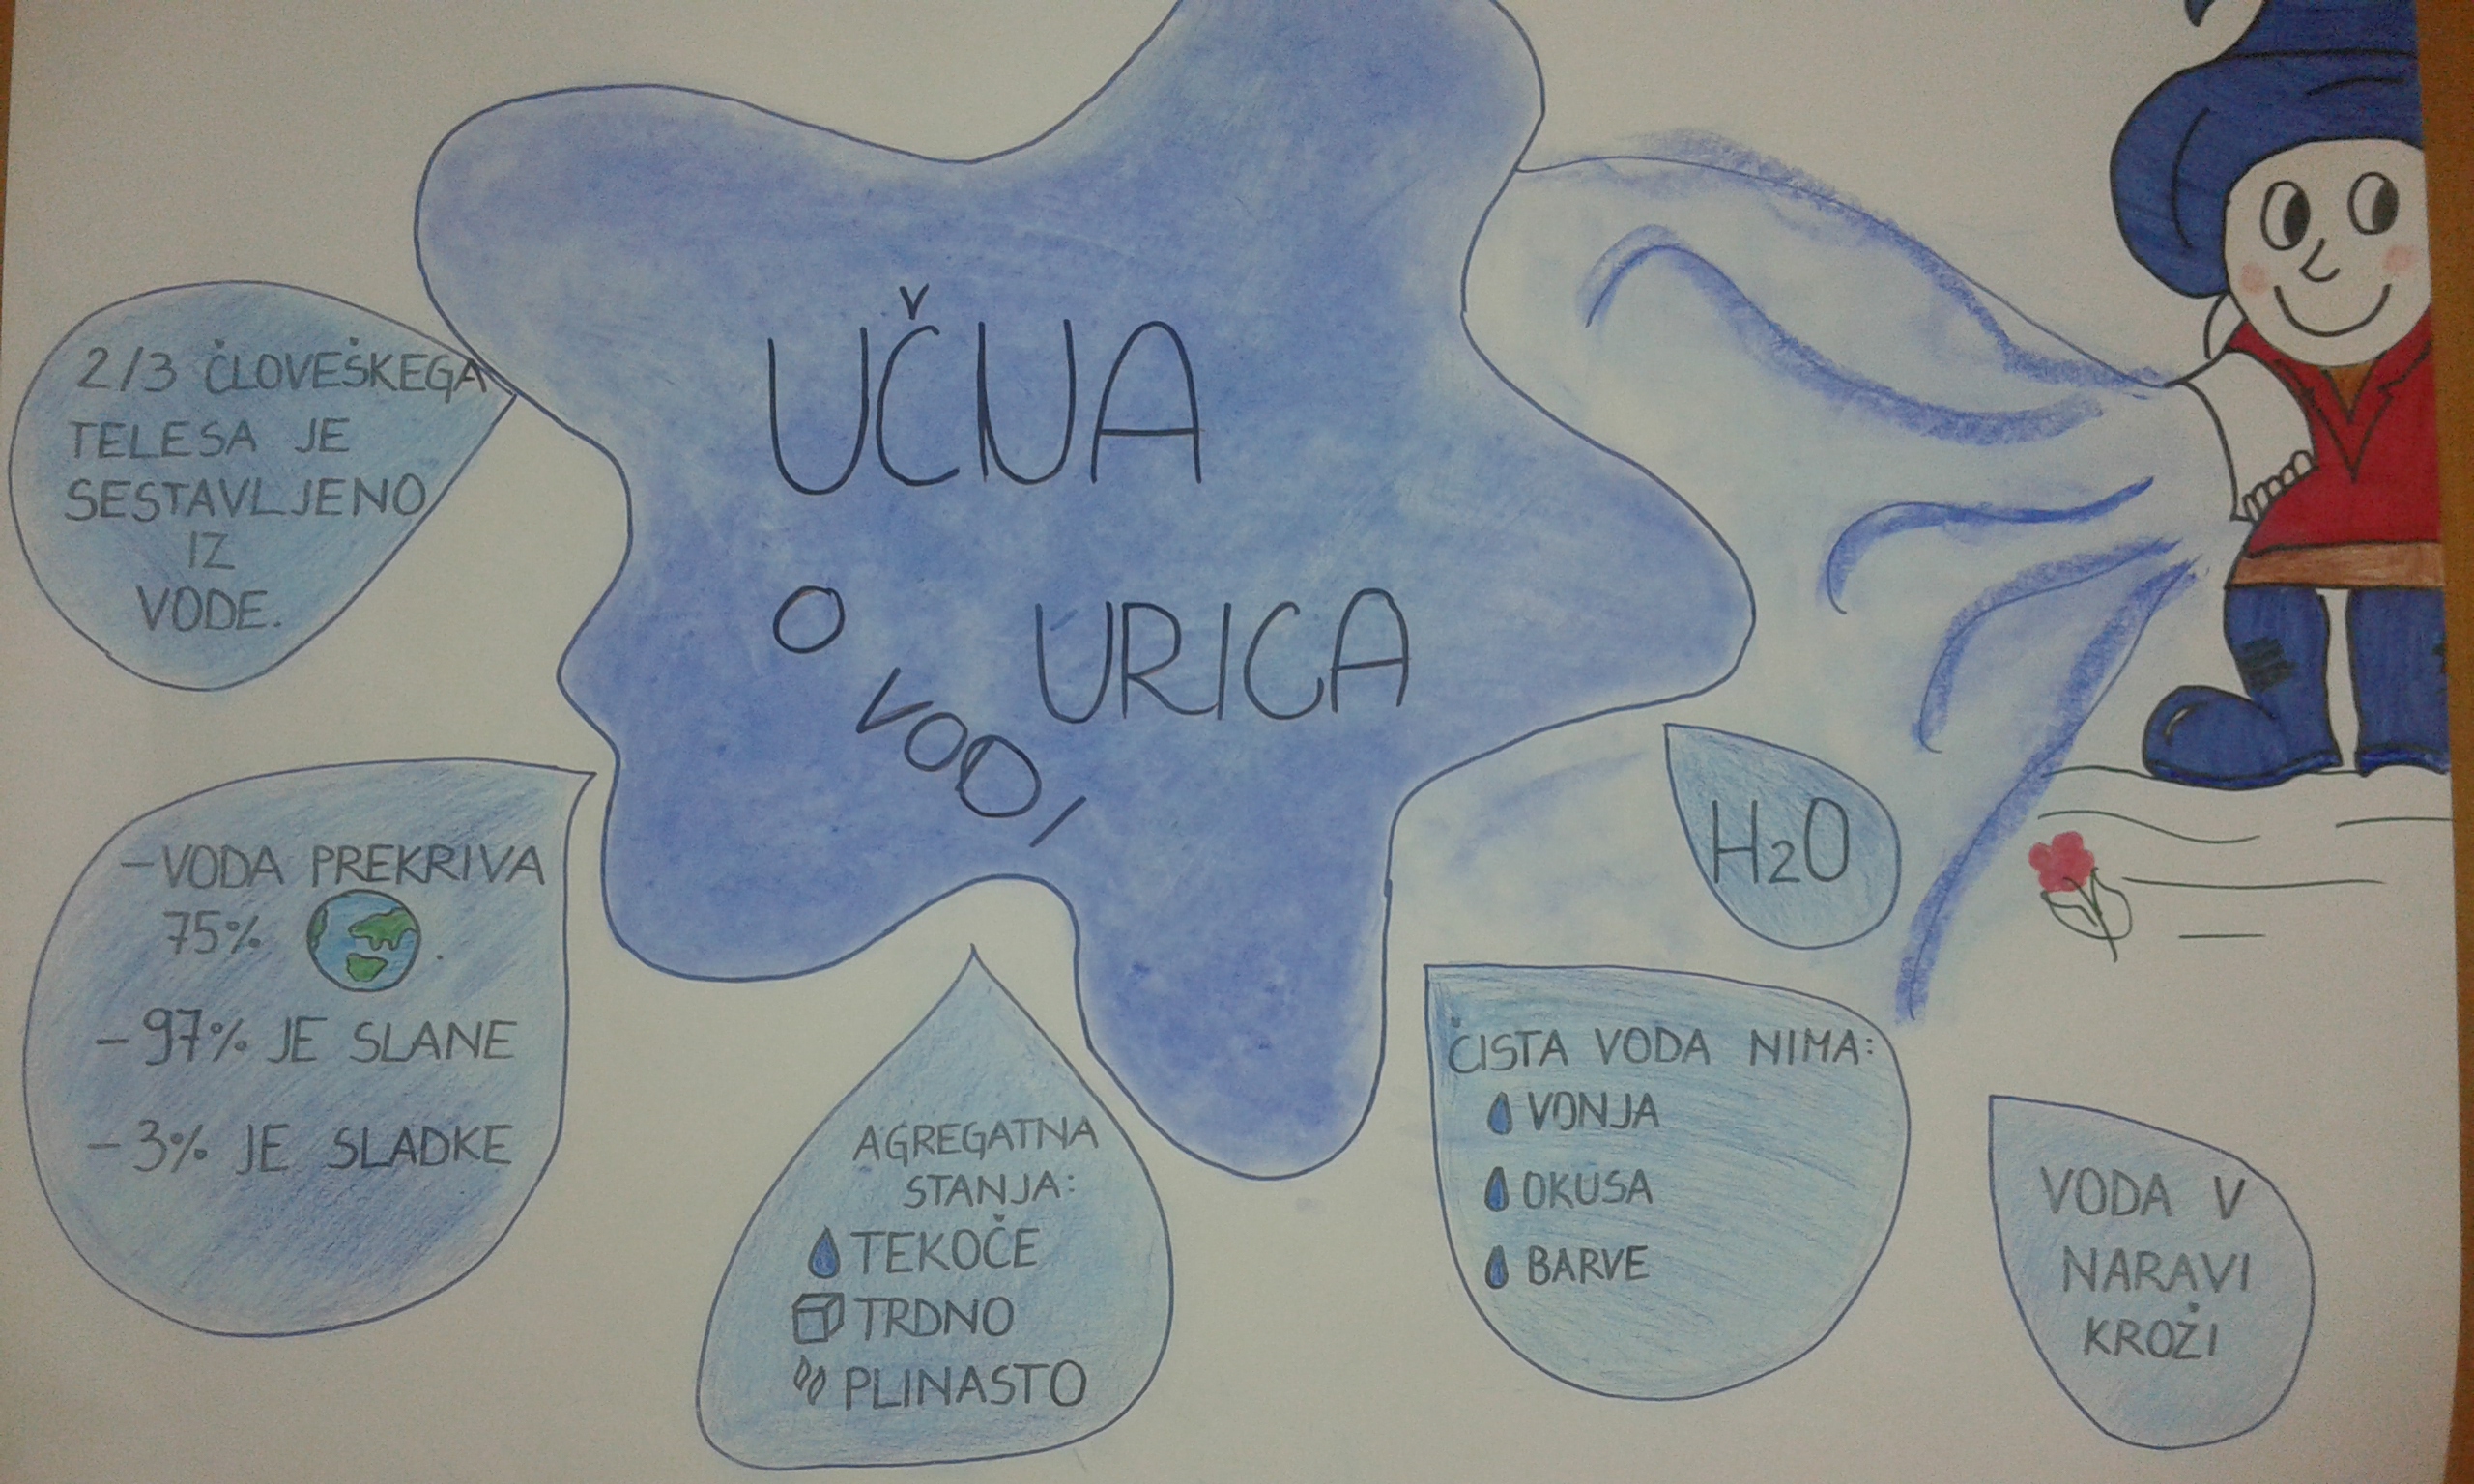 UČNA
URICA
O VODI
2/3 ČLOVEŠKEGA
TELESA JE
SESTAVLJENO
IZ
VODE.
-VODA PREKRIVA
75% .
-97% JE SLANE
-3% JE SLADKE
AGREGATNA
STANJA:
TEKOČE
TRDNO
PLINASTO
H2O
ČISTA VODA NIMA:
VONJA
OKUSA
BARVE
VODA V
NARAVI
KROŽI